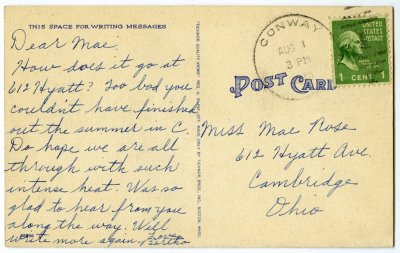 THIS SPACE FOR WRITING MESSAGES
Dear Mae.
How does it go at
612 Hyatt? Too bad you
couldn't have finished
out the summer in C.
Do hope we are all
through with such
intense heat. Was so
glad to hear from you
along the way. Will
write more again. Love,
Bertha
CONWAY
AUG 1
3 PM
UNITED STATES
POSTAGE
1 CENT 1
POST CARD
Miss Mae Rose
612 Hyatt Ave.
Cambridge
Ohio